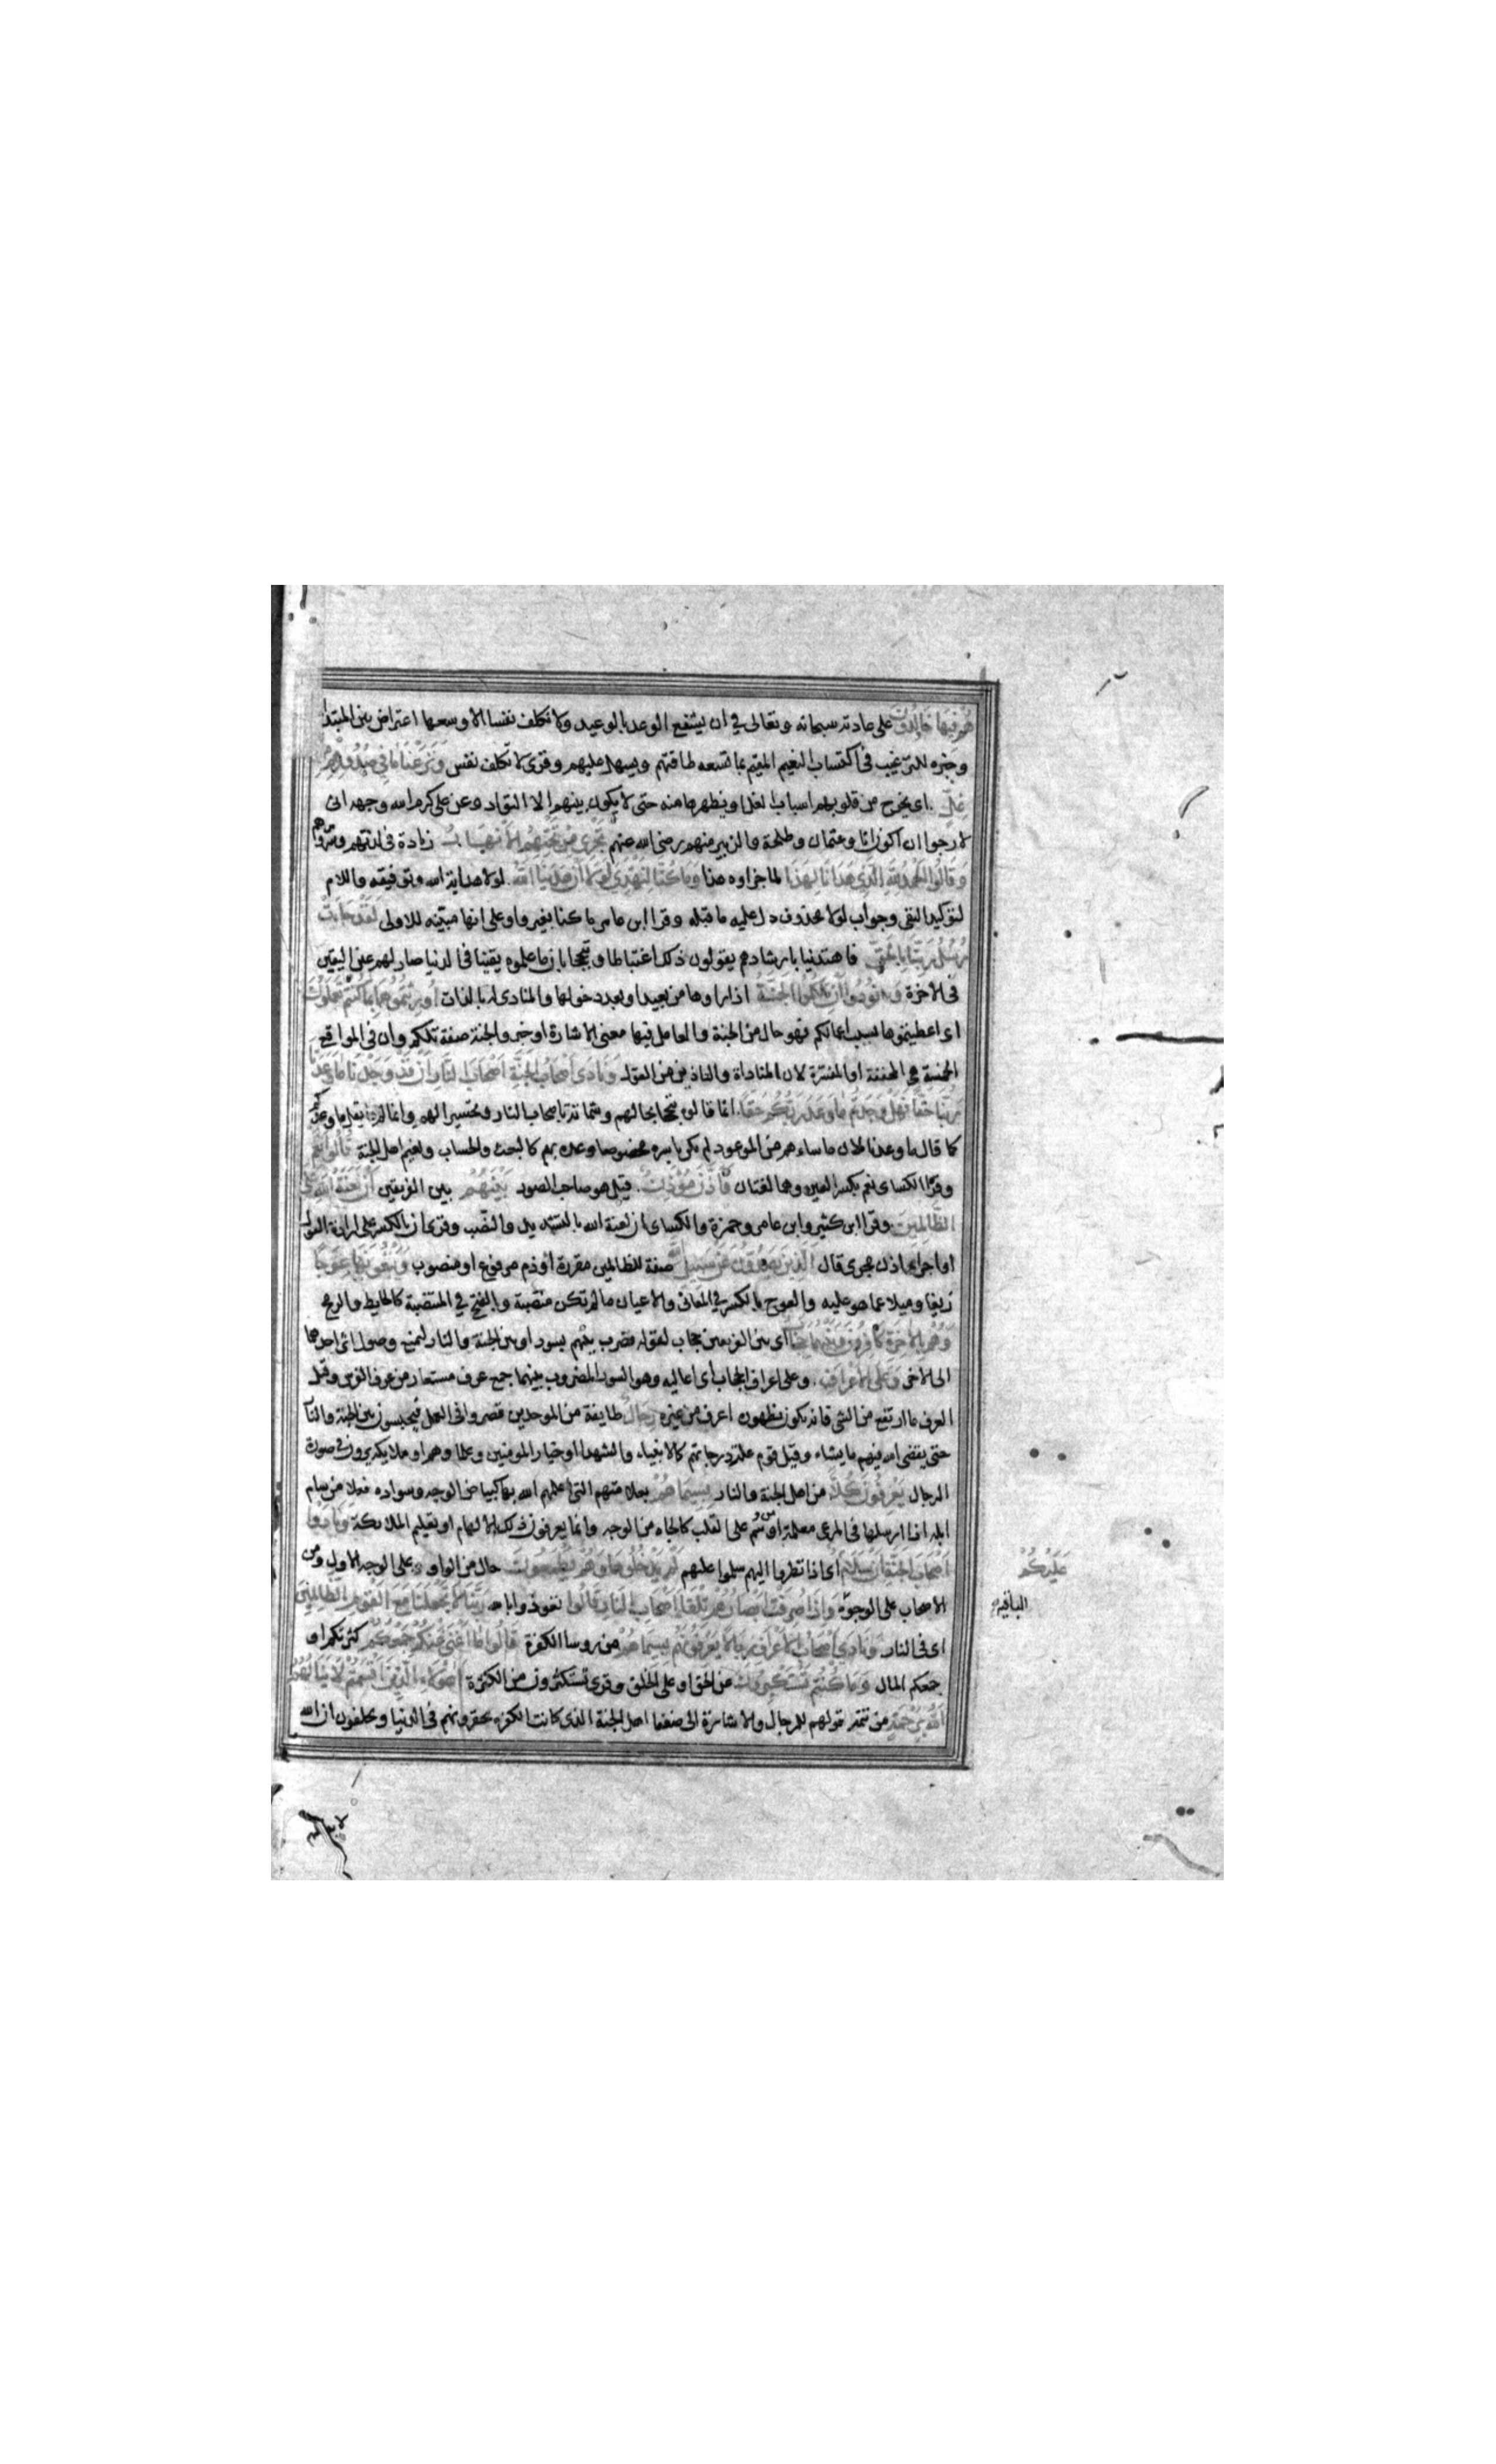 هُمْ فِيهَا خَالِدُونَ على عادته سبحانه وتعالى في ان يشفع الوعد بالوعيد ولا تكلف نفسا الا وسعها اعتراض بين المبتدا
وخبره للترغيب فى اكتساب النعيم المقيم بما تسعه طاقتهم ويسهل عليهم وقرى لا تكلف نفس وَنَزَعْنَا مَا فِي صُدُورِهِمْ
غِلٍّ اى يخرج من قلوبهم اسباب الغل او يطهرها منه حتى لا يكون بينهم الا التواد وعن على كرم الله وجهه انى
لارجوا ان اكون انا وعثمان وطلحة والزبير منهم رضى الله عنهم تَجْرِي مِنْ تَحْتِهِمُ الْأَنْهَارُ زيادة فى لذتهم وسرورهم
وَقَالُوا الْحَمْدُ لِلَّهِ الَّذِي هَدَانَا لِهَذَا لما جزاوه هذا وَمَا كُنَّا لِنَهْتَدِيَ لَوْلَا أَنْ هَدَانَا اللَّهُ لولا هداية الله وتوفيقه واللام
لتوكيد النفى وجواب لولا محذوف دل عليه ما قبله وقرا ابن عامر ما كنا بغير واو على انها مبينه للاولى لَقَدْ جَاءَتْ
رُسُلُ رَبِّنَا بِالْحَقِّ فاهتدينا بارشادهم يقولون ذلك اغتباطا وتبجحا بان ما علموه يقينا فى الدنيا صار لهم عين اليقين
فى الاخرة وَنُودُوا أَنْ تِلْكُمُ الْجَنَّةُ اذا راوها من بعيد او بعد دخولها والمنادى له بالذات أُورِثْتُمُوهَا بِمَا كُنْتُمْ تَعْمَلُونَ
اى اعطيتموها بسبب اعمالكم فهو حال من الجنة والعامل فيها معنى الاشارة او خبر والجنة صفة تلكم وان فى المواقع
الخمسة هى المخففة او المفسرة لان المناداة والتاذين من القول وَنَادَى أَصْحَابُ الْجَنَّةِ أَصْحَابَ النَّارِ أَنْ قَدْ وَجَدْنَا مَا وَعَدَنَا
رَبُّنَا حَقًّا فَهَلْ وَجَدْتُمْ مَا وَعَدَ رَبُّكُمْ حَقًّا انما قالوه تبجحا بحالهم وشماتة باصحاب النار وتحسيرا لهم وانما لم يقل ما وعدكم
كما قال ما وعدنا لان ما ساءهم من الموعود لم يكن باسره مخصوصا وعده بهم كالبعث والحساب ونعيم اهل الجنة قَالُوا نَعَمْ
وقرا الكساى نعم بكسر العين وهما لغتان فَأَذَّنَ مُؤَذِّنٌ قيل هو صاحب الصور بَيْنَهُمْ بين الفريقين أَنْ لَعْنَةُ اللَّهِ عَلَى
الظَّالِمِينَ وقرا ابن كثير وابن عامر وحمزة والكساى ان لعنة الله بالتشديد والنصب وقرى ان بالكسر على ارادة القول
او اجراء اذن مجرى قال الَّذِينَ يَصُدُّونَ عَنْ سَبِيلِ اللَّهِ صفة للظالمين مقررة او ذم مرفوع او منصوب وَيَبْغُونَهَا عِوَجًا
زيغا وميلا عما هو عليه والعوج بالكسر في المعانى والاعيان ما لم تكن منتصبة وبالفتح في المنتصبة كالحايط والرمح
وَهُمْ بِالْآخِرَةِ كَافِرُونَ وَبَيْنَهُمَا حِجَابٌ اى بين الفريقين حجاب لقوله فضرب بينهم بسور او بين الجنة والنار ليمنع وصول اثر احدهما
الى الاخرى وَعَلَى الْأَعْرَافِ وعلى اعراف الحجاب اى اعاليه وهو السور المضروب بينهما جمع عرف مستعار من عرف الفرس وقيل
العرف ما ارتفع من الشى فانه يكون بظهوره اعرف من غيره رِجَالٌ طايفة من الموحدين قصروا فى العمل فيحبسون بين الجنة والنار
حتى يقضى الله فيهم ما يشاء وقيل قوم علت درجاتهم كالانبياء والشهدا او خيار المومنين وعلماوهم او ملايكة يرون فى صورة
الرجال يَعْرِفُونَ كُلًّا من اهل الجنة والنار بِسِيمَاهُمْ بعلامتهم التى اعلمهم الله بها كبياض الوجه وسواده فعلا من سام
ابله اذا ارسلها فى المرعى معلمة او من وسم على القلب كالجاه من الوجه وانما يعرفون ذلك بالالهام او بتعليم الملائكة وَنَادَوْا
أَصْحَابَ الْجَنَّةِ أَنْ سَلَامٌ اى اذا نظروا اليهم سلموا عليهم لَمْ يَدْخُلُوهَا وَهُمْ يَطْمَعُونَ حال من الواو على الوجه الاول ومن
الاصحاب على الوجوه وَإِذَا صُرِفَتْ أَبْصَارُهُمْ تِلْقَاءَ أَصْحَابِ النَّارِ قَالُوا نعوذ بالله رَبَّنَا لَا تَجْعَلْنَا مَعَ الْقَوْمِ الظَّالِمِينَ
اى فى النار وَنَادَى أَصْحَابُ الْأَعْرَافِ رِجَالًا يَعْرِفُونَهُمْ بِسِيمَاهُمْ من روسا الكفرة قَالُوا مَا أَغْنَى عَنْكُمْ جَمْعُكُمْ كثرتكم او
جمعكم المال وَمَا كُنْتُمْ تَسْتَكْبِرُونَ عن الحق او على الخلق وقرى تستكثرون من الكثرة أَهَؤُلَاءِ الَّذِينَ أَقْسَمْتُمْ لَا يَنَالُهُمُ
اللَّهُ بِرَحْمَةٍ من تتمة قولهم للرجال والاشارة الى ضعفا اهل الجنة الذى كانت الكفرة يحقرونهم فى الدنيا ويحلفون ان الله
عَلَيْكُمْ
الباقية